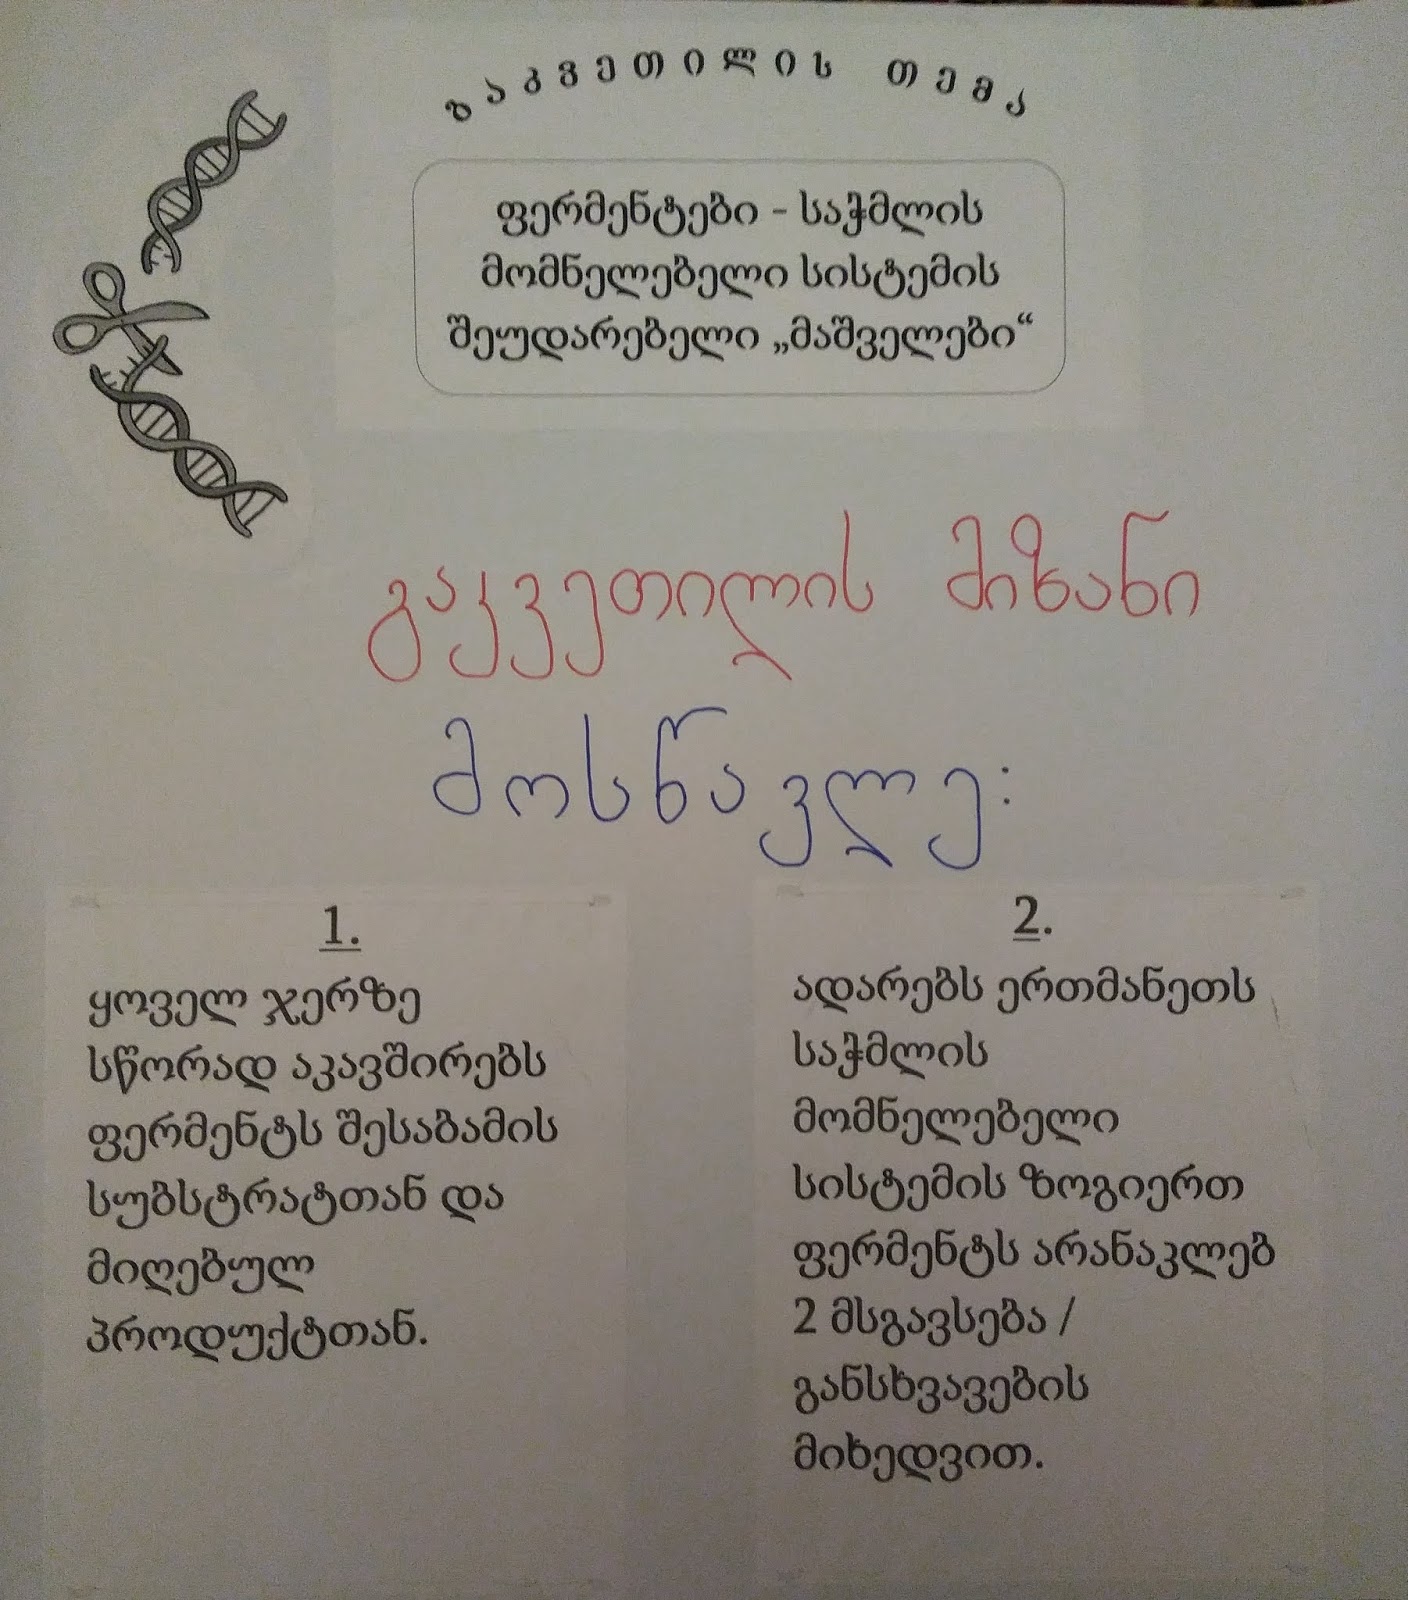 გაკვეთილის თემა
ფერმენტები - საჭმლის
მომნელებელი სისტემის
შეუდარებელი „მაშველები“
გაკვეთილის მიზანი
მოსწავლე:
1.
ყოველ ჯერზე
სწორად აკავშირებს
ფერმენტს შესაბამის
სუბსტრატთან და
მიღებულ
პროდუქტთან.
2.
ადარებს ერთმანეთს
საჭმლის
მომნელებელი
სისტემის ზოგიერთ
ფერმენტს არანაკლებ
2 მსგავსება /
განსხვავების
მიხედვით.